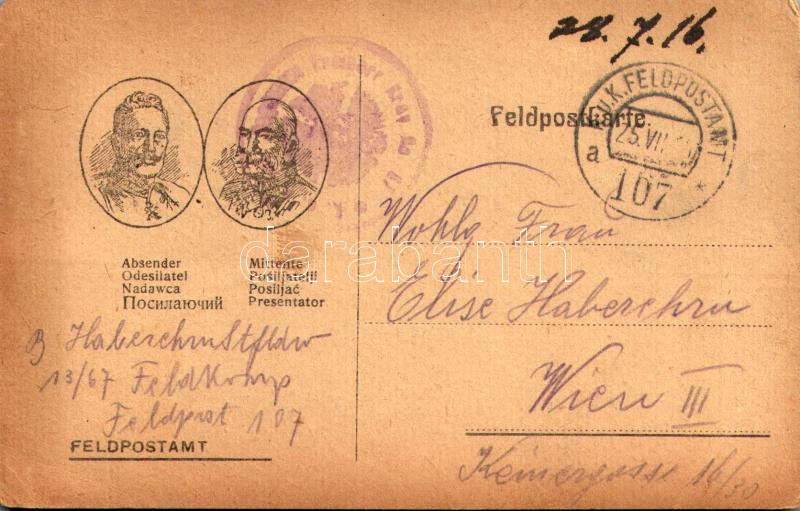 28.7.16.
Feldpostkarte.
K.U.K. FELDPOSTAMT
25.VII.
a
107
*
Wohlg Frau
Elise Haberehrn
Wien III
16/30
Absender
Odesilatel
Nadawca
Посилаючий
Mittente
Pošiljatelj
Posiljač
Presentator
B
13/67 Feldkomp
Feldpost 107
FELDPOSTAMT
darabanth